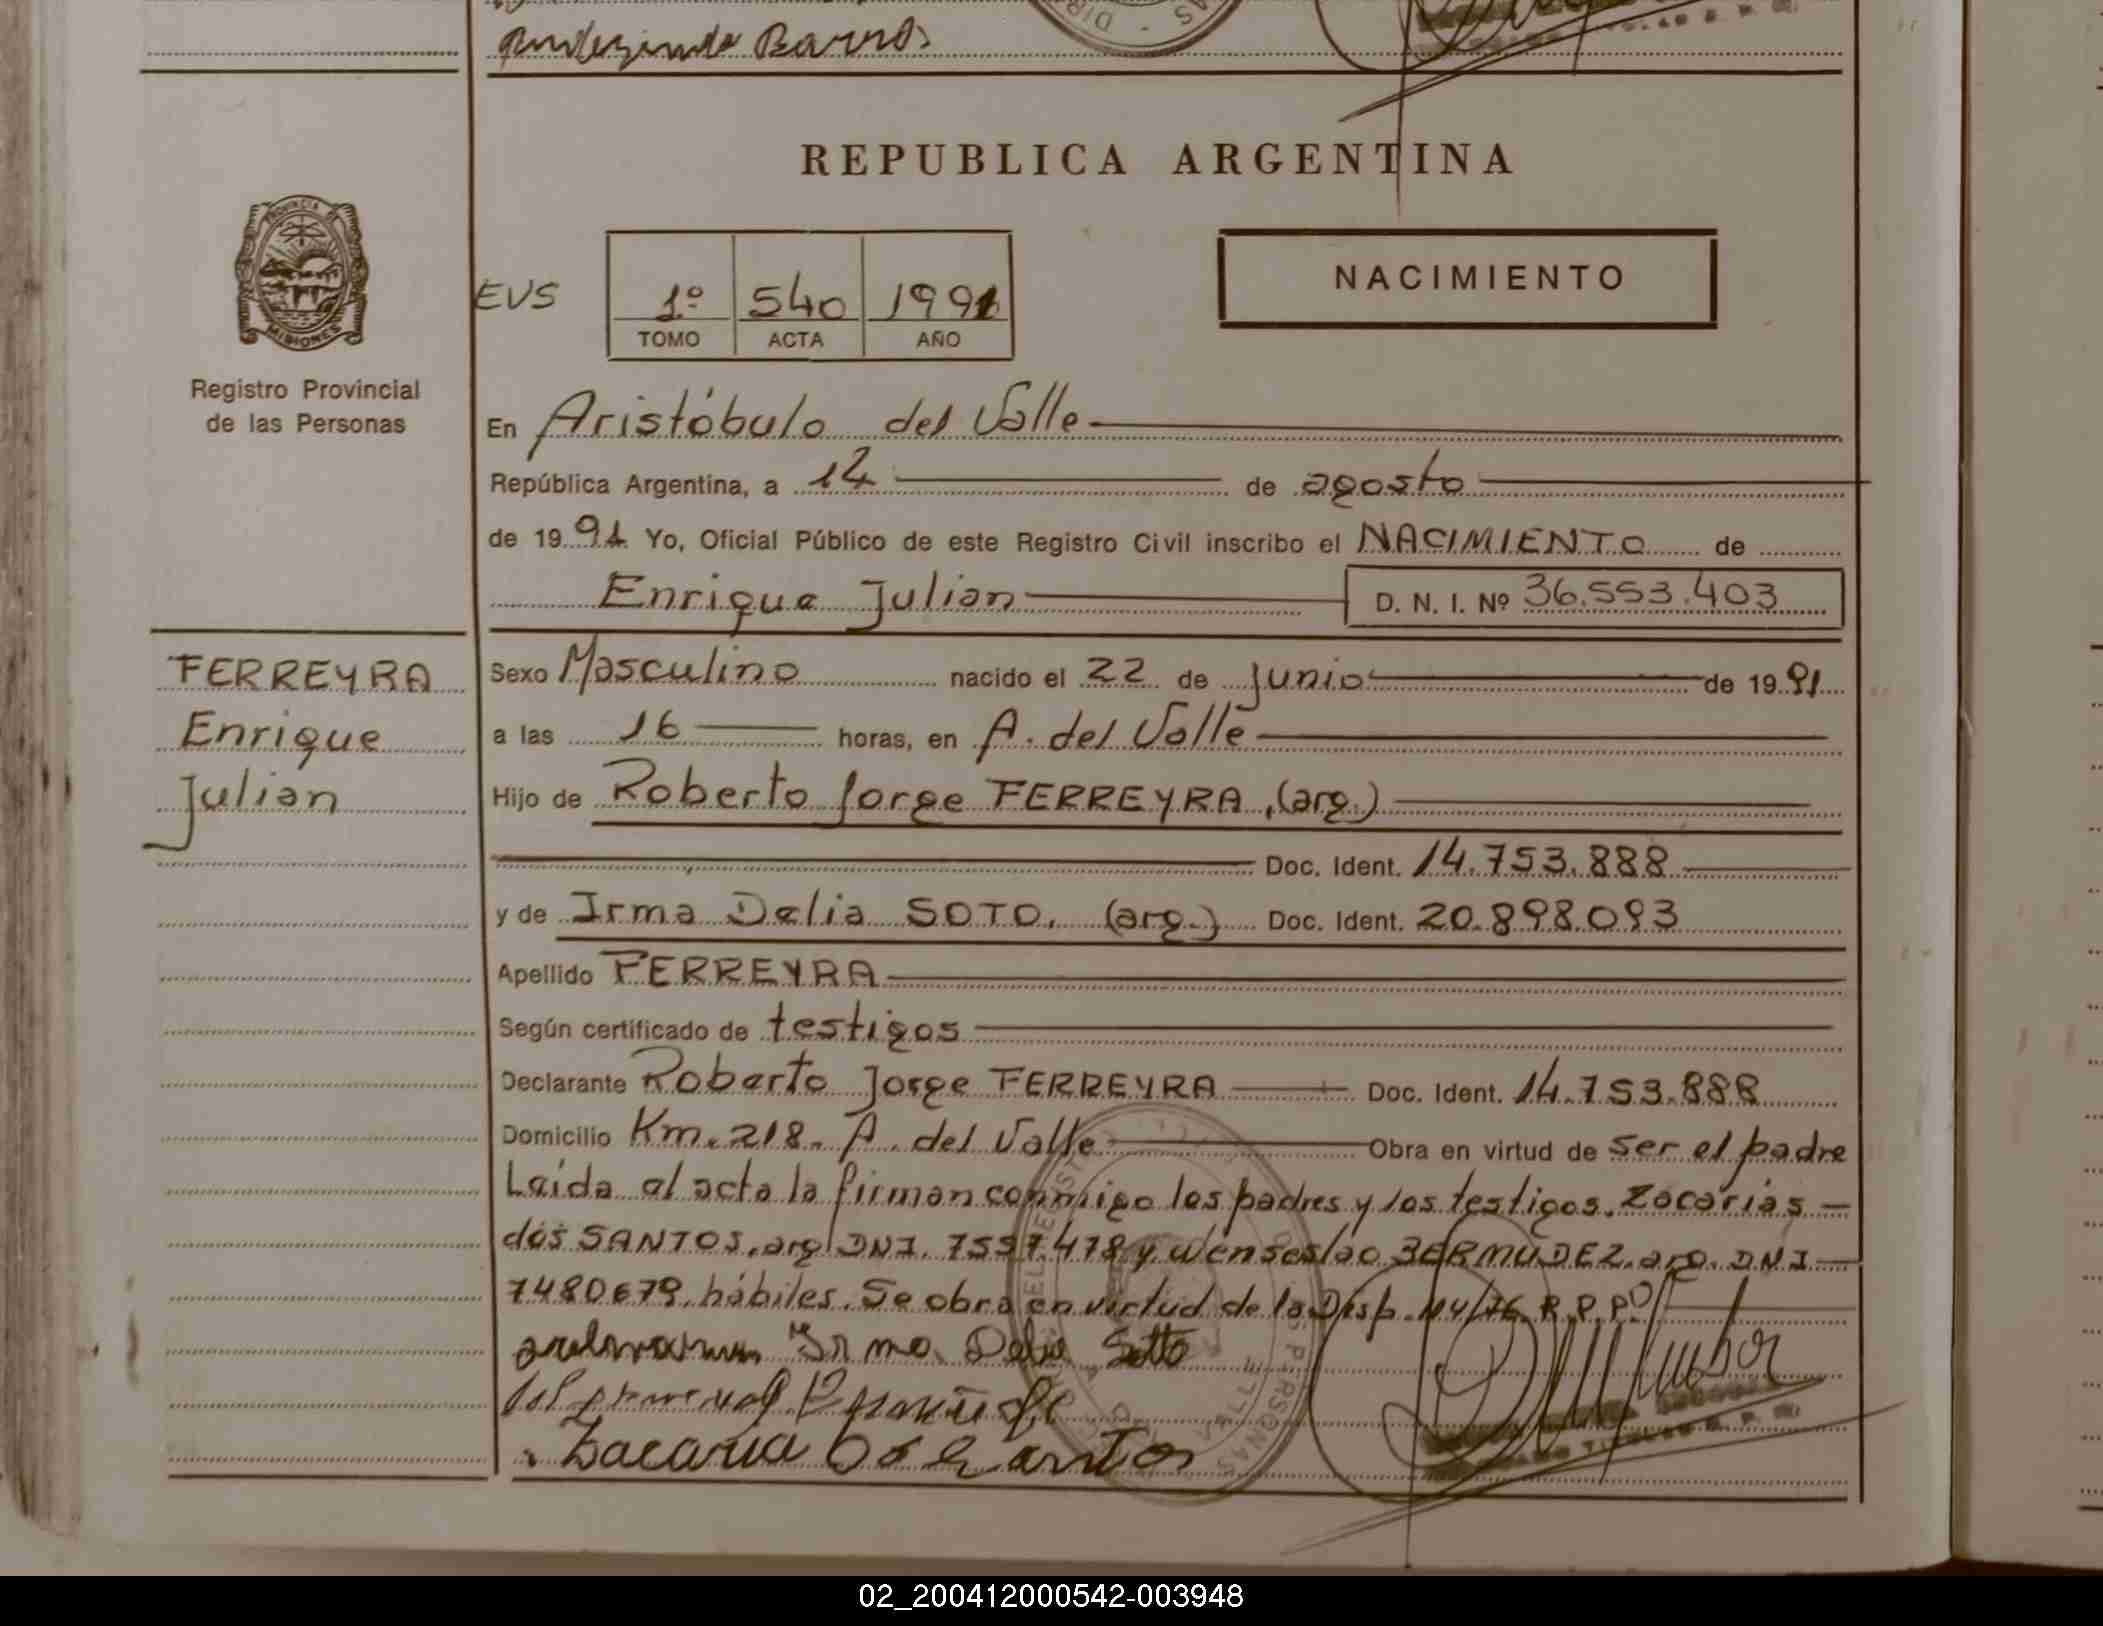 REPUBLICA ARGENTINA
PROVINCIA DE
MISIONES
Registro Provincial
de las Personas
EVS
1º 540 1991
TOMO ACTA AÑO
NACIMIENTO
En Aristóbulo del Valle
República Argentina, a 14 de agosto
de 1991 Yo, Oficial Público de este Registro Civil inscribo el NACIMIENTO de
Enrique Julian D. N. I. Nº 36.553.403
FERREYRA
Enrique
Julian
Sexo Masculino nacido el 22 de Junio de 1991
a las 16 horas, en A. del Valle
Hijo de Roberto Jorge FERREYRA, (arg.)
Doc. Ident. 14.753.888
y de Irma Delia SOTO. (arg.) Doc. Ident. 20.898.093
Apellido FERREYRA
Según certificado de testigos
Declarante Roberto Jorge FERREYRA Doc. Ident. 14.753.888
Domicilio Km. 218. A. del Valle Obra en virtud de ser el padre
Leída el acta la firman conmigo los padres y los testigos. Zacarías
dos SANTOS, arg DNI. 7597478 y Wenseslao BERMUDEZ. arg. DNI
7480679, hábiles. Se obra en virtud de la Disp. 114/76 R.P.P.
Irma Delia Sotto
Zacaria Do Santos
02_200412000542-003948